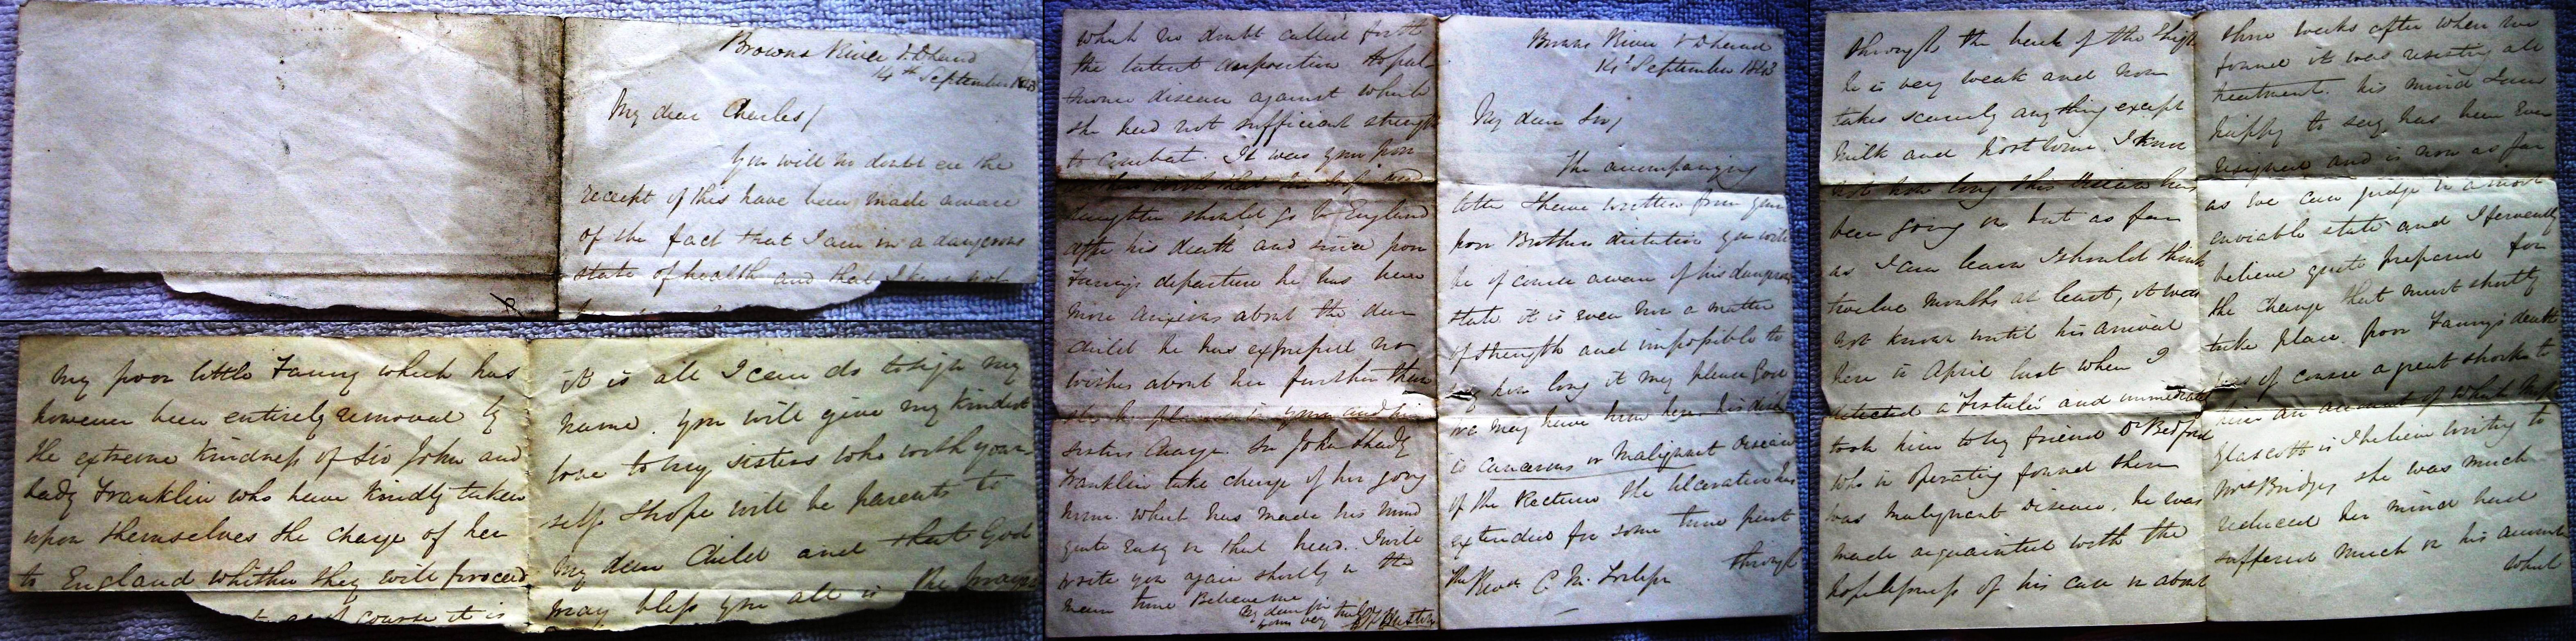 Browns River V. D Land
14th September 1843
My dear Charles/
You will no doubt ere the
receipt of this have been made aware
of the fact that I am in a dangerous
state of health and that I have not
my poor little Fanny which has
however been entirely removed by
the extreme kindness of Sir John and
Lady Franklin who have kindly taken
upon themselves the charge of her
to England whither they will proceed
of course it is
it is all I can do to sign my
name. You will give my kindest
love to my sisters who with your-
self I hope will be parents to
my dear Child and that God
may bless you all is the prayer
Browns River V D Land
14th September 1843
My dear Sir/
The accompanying
letter I have written from your
poor Brothers dictation you will
be of course aware of his dangerous
state it is even now a matter
of strength and impossible to
say how long it may please God
we may have him here his disease
is cancerous or Malignant disease
of the Rectum the Ulceration has
extended for some time past
The Revd. C. M.
through
through the back of the thigh
he is very weak and now
takes scarcely anything except
milk and Port wine. I know
not how long this disease has
been going on but as far
as I can learn I should think
twelve months at least, it was
not known until his arrival
here in April last when I
detected a Fistula and immediately
took him to my friend Dr Bedford
who in operating found there
was malignant disease. he was
made acquainted with the
hopelessness of his case in about
three weeks after when we
found it was resisting all
treatment. his mind I am
happy to say has been ever
resigned and is now as far
as we can judge in a most
enviable state and I fervently
believe quite prepared for
the change that must shortly
take place. poor Fanny's death
was of course a great shock to
him an account of which Miss
Glascott is I believe writing to
Mrs Bridges she was much
reduced her mind had
suffered much on his account
which
which no doubt called forth
the latent disposition to pul-
monic disease against which
she had not sufficient strength
to combat. It was your poor
brothers wish that his wife and
daughter should go to England
after his death and since poor
Fanny's departure he has been
more anxious about the dear
child he has expressed no
wishes about her further than
sisters charge. Sir John & Lady
Franklin take charge of her going
home. which has made his mind
quite easy on that head. I will
write you again shortly in the
mean time Believe me
My dear Sir
yours very truly